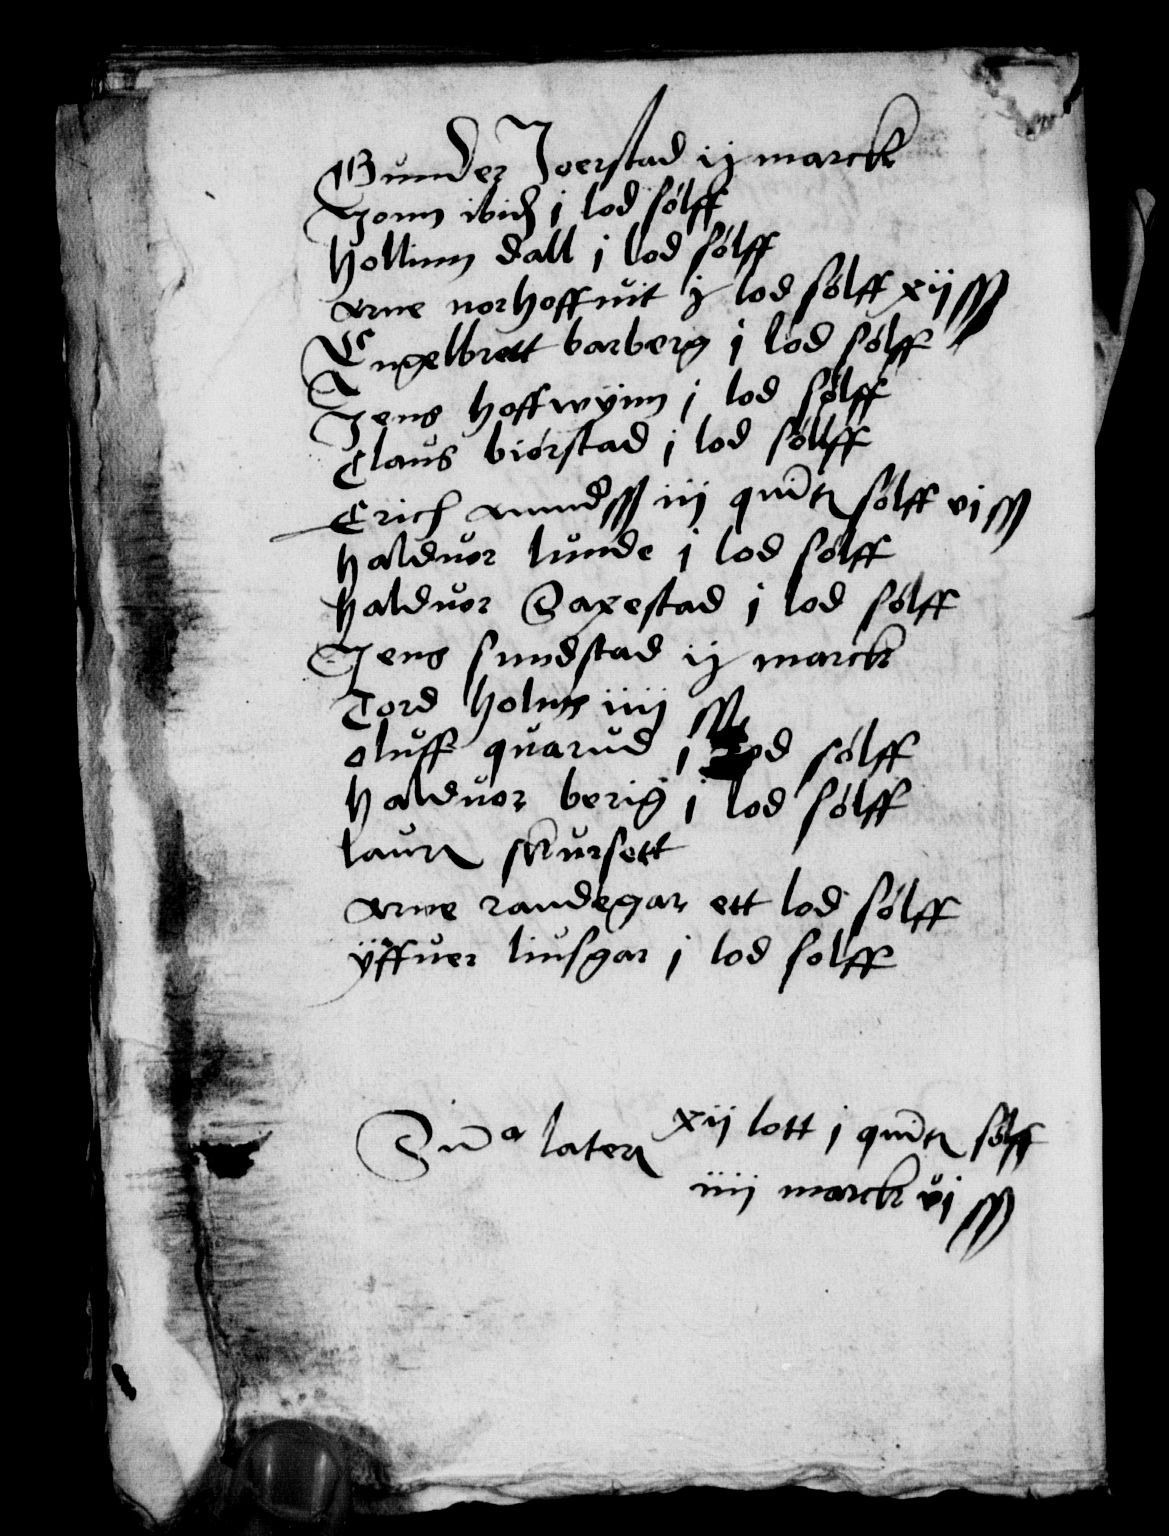 Gunder Joerstad ij marck
Jonn ibid j lod sølff
hollinn dall j lod sølff
arne norhoffuit ½ lod sølff xij ß
Engelbrett barberg j lod sølff
Jens hoffwÿnn j lod sølff
Claus biørstad j lod sølff
Erich iij quint sølff vi ß
haldvor lunde j lod sølff
haldvor Saxestad j lod sølff
Jens sundstad ij marck
Tord holms iiij ß
oluff quarud j lod sølff
haldvor berig j lod sølff
laur skursett
arne randegar ett lod sølff
ÿffuer liusgar j lod sølff
Sum̄a lateris xij lott j quint sølff
iiij marck vi ß